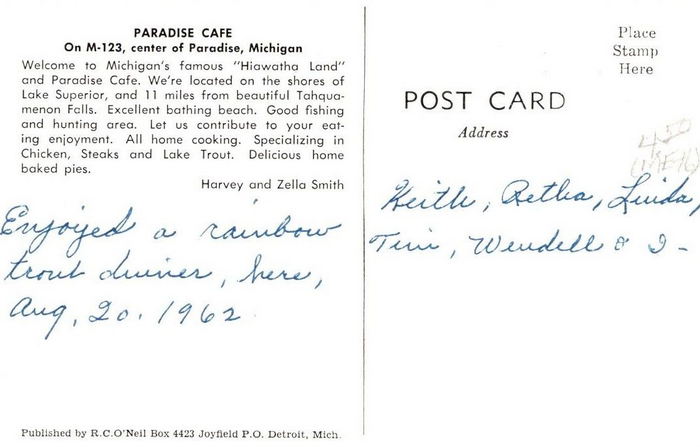 PARADISE CAFE
On M-123, center of Paradise, Michigan
Welcome to Michigan's famous "Hiawatha Land"
and Paradise Cafe. We're located on the shores of
Lake Superior, and 11 miles from beautiful Tahqua-
menon Falls. Excellent bathing beach. Good fishing
and hunting area. Let us contribute to your eat-
ing enjoyment. All home cooking. Specializing in
Chicken, Steaks and Lake Trout. Delicious home
baked pies.
Harvey and Zella Smith
Enjoyed a rainbow
trout dinner, here,
Aug. 20, 1962.
Published by R.C.O'Neil Box 4423 Joyfield P.O. Detroit, Mich.
Place
Stamp
Here
POST CARD
Address
4.50
Keith, Retha, Linda,
Tim, Wendell & I -